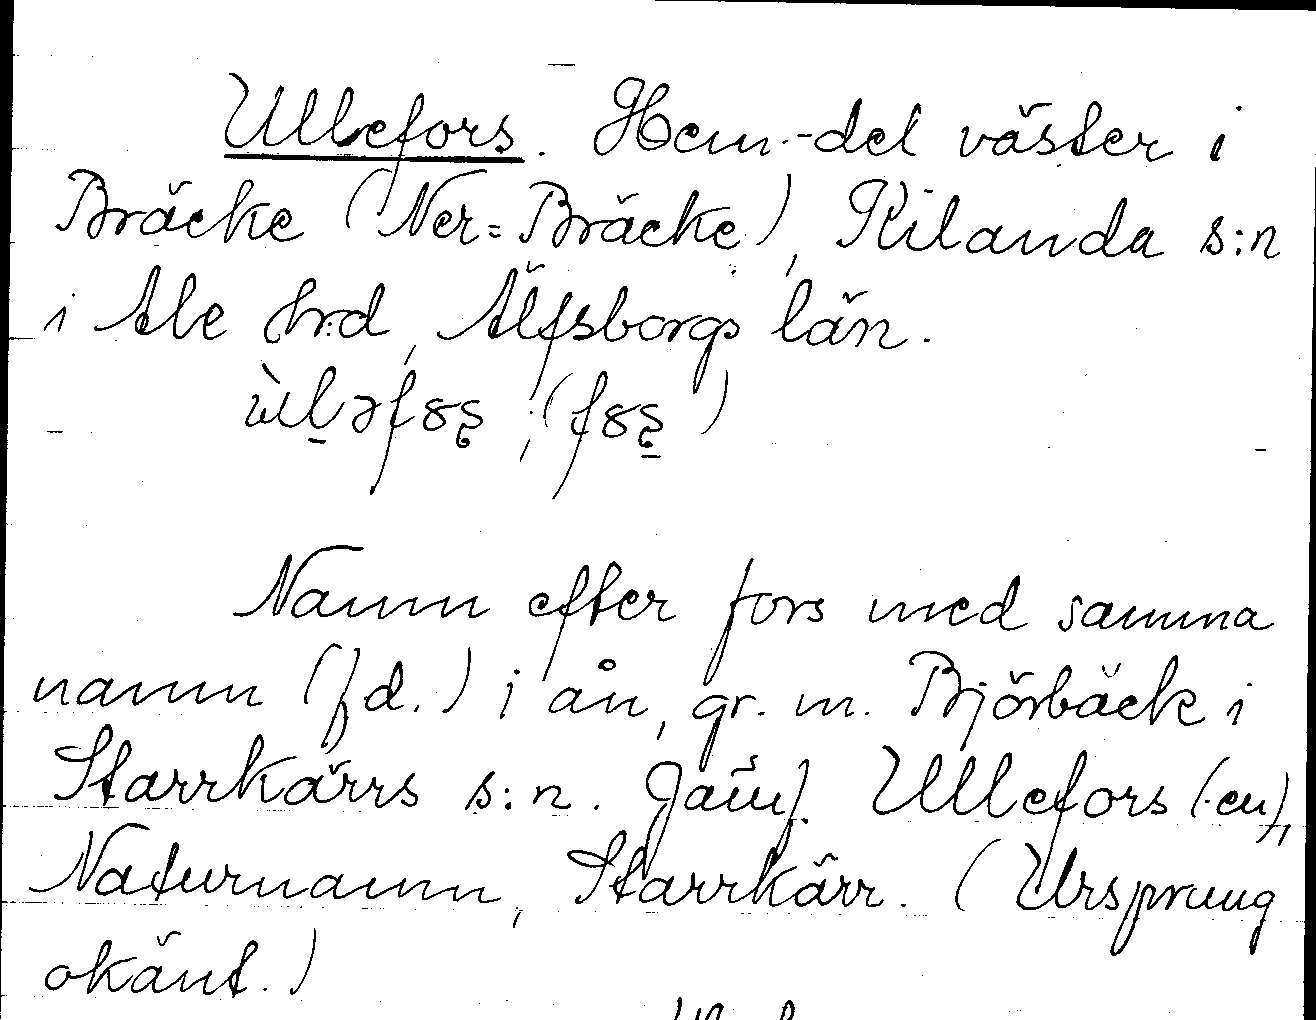 Ullefors. Hem.-del väster i
Bräcke (Ner=Bräcke), Kilanda s:n
i Ale hrd, Älfsborgs län.
Namn efter fors med samma
namn (f d.) i ån, gr. m. Björbäck i
Starrkärrs s:n. Jämf. Ullefors (-en),
Naturnamn, Starrkärr. (Ursprung
okänt.)